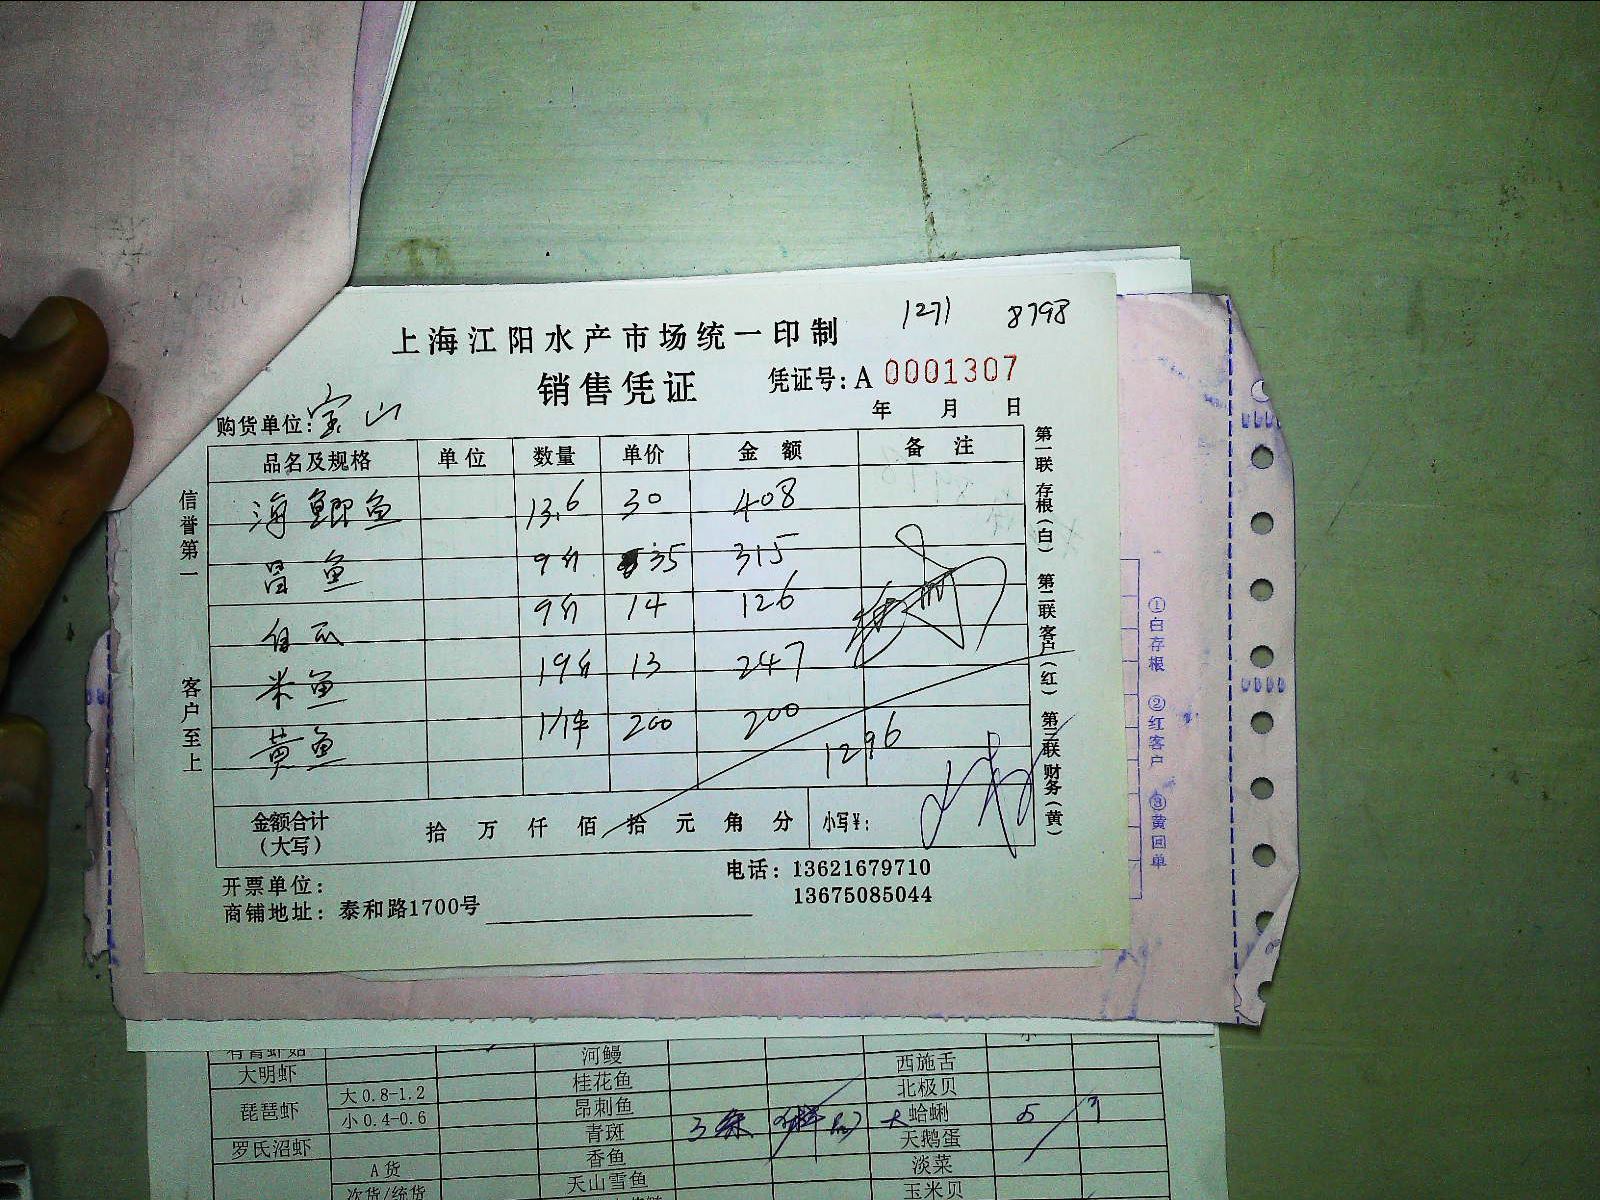 1271 8798
上海江阳水产市场统一印制
销售凭证 凭证号:A 0001307
购货单位:宝山 年 月 日
品名及规格 单位 数量 单价 金额 备注
海鲫鱼 13.6 30 408
昌鱼 9斤 35 315
9斤 14 126
米鱼 19斤 13 247
黄鱼 1件 200 200
1296
金额合计(大写) 拾 万 仟 佰 拾 元 角 分 小写¥:
电话:13621679710
13675085044
开票单位:
商铺地址:泰和路1700号
信誉第一 客户至上
第一联 存根(白) 第二联 客户(红) 第三联 财务(黄)
①白存根 ②红客户 ③黄回单
河鳗 西施舌
大明虾 桂花鱼 北极贝
琵琶虾 大 0.8-1.2 昂刺鱼 大蛤蜊 5
小 0.4-0.6 青斑 3条 天鹅蛋
罗氏沼虾 香鱼 淡菜
A 货 天山雪鱼 玉米贝
次货/统货